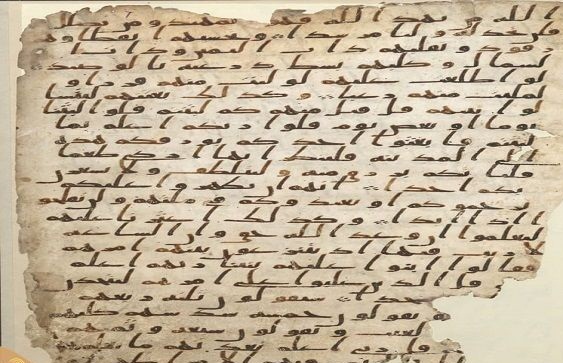 الله من يهد الله فهو المهتد ومن يضلل
فلن تجد له وليا مرشدا وتحسبهم ايقظا وهم
رقود ونقلبهم ذات اليمين وذات ا
لشمال وكلبهم بسط ذرعيه بالوصيد
لو اطلعت عليهم لوليت منهم فرارا و
لملئت منهم رعبا وكذلك بعثنهم ليتسا
لوا بينهم قال قئل منهم كم لبثتم قلوا لبثنا
يوما او بعض يوم قلوا ربكم اعلم بما
لبثتم فابعثوا احدكم بورقكم هذه
الى المدينة فلينظر ايها ازكى طعما
فلياتكم برزق منه وليتلطف ولا يشعرن
بكم احدا انهم ان يظهروا عليكم
يرجموكم او يعيدوكم في ملتهم ولن تفلحوا
اذا ابدا وكذلك اعثرنا عليهم
ليعلموا ان وعد الله حق وان الساعة
لا ريب فيها اذ يتنزعون بينهم امرهم
فقالوا ابنوا عليهم بنينا ربهم اعلم
قال الذين غلبوا على امرهم لنتخذن
جدا سيقولون ثلثة رابعهم
هم ويقولون خمسة سدسهم كلبهم
لغيب ويقولون سبعة وثمنهم
قل ربي اعلم بعدتهم ما يعلمهم